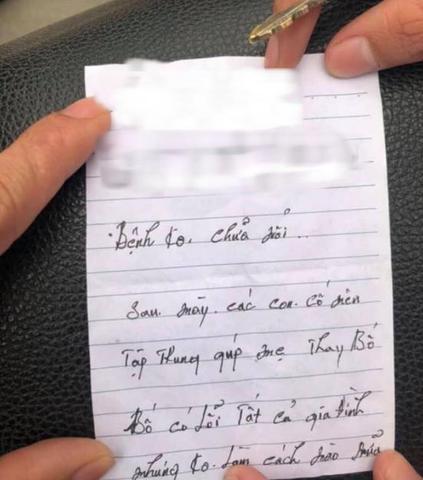 Bệnh ko. chưả nỗi..
Sau. này. các con. cố nên
Tập Thung qúp mẹ Thay Bố
Bố có Lổi Tất cả gia Đình
nhưng ko Làm cách nào nưả